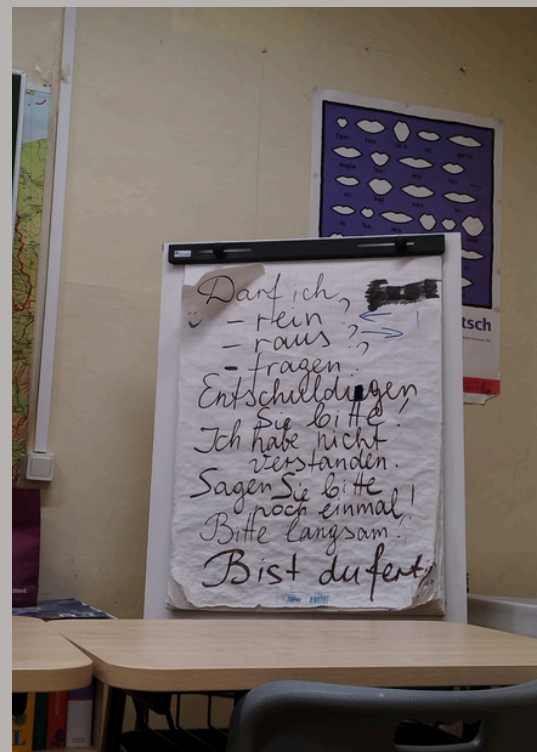 Darf ich
- rein ?
- raus ?
- fragen ?
Entschuldigen
Sie bitte!
Ich habe nicht
verstanden.
Sagen Sie bitte
noch einmal!
Bitte langsam!
Bist du fert
tsch